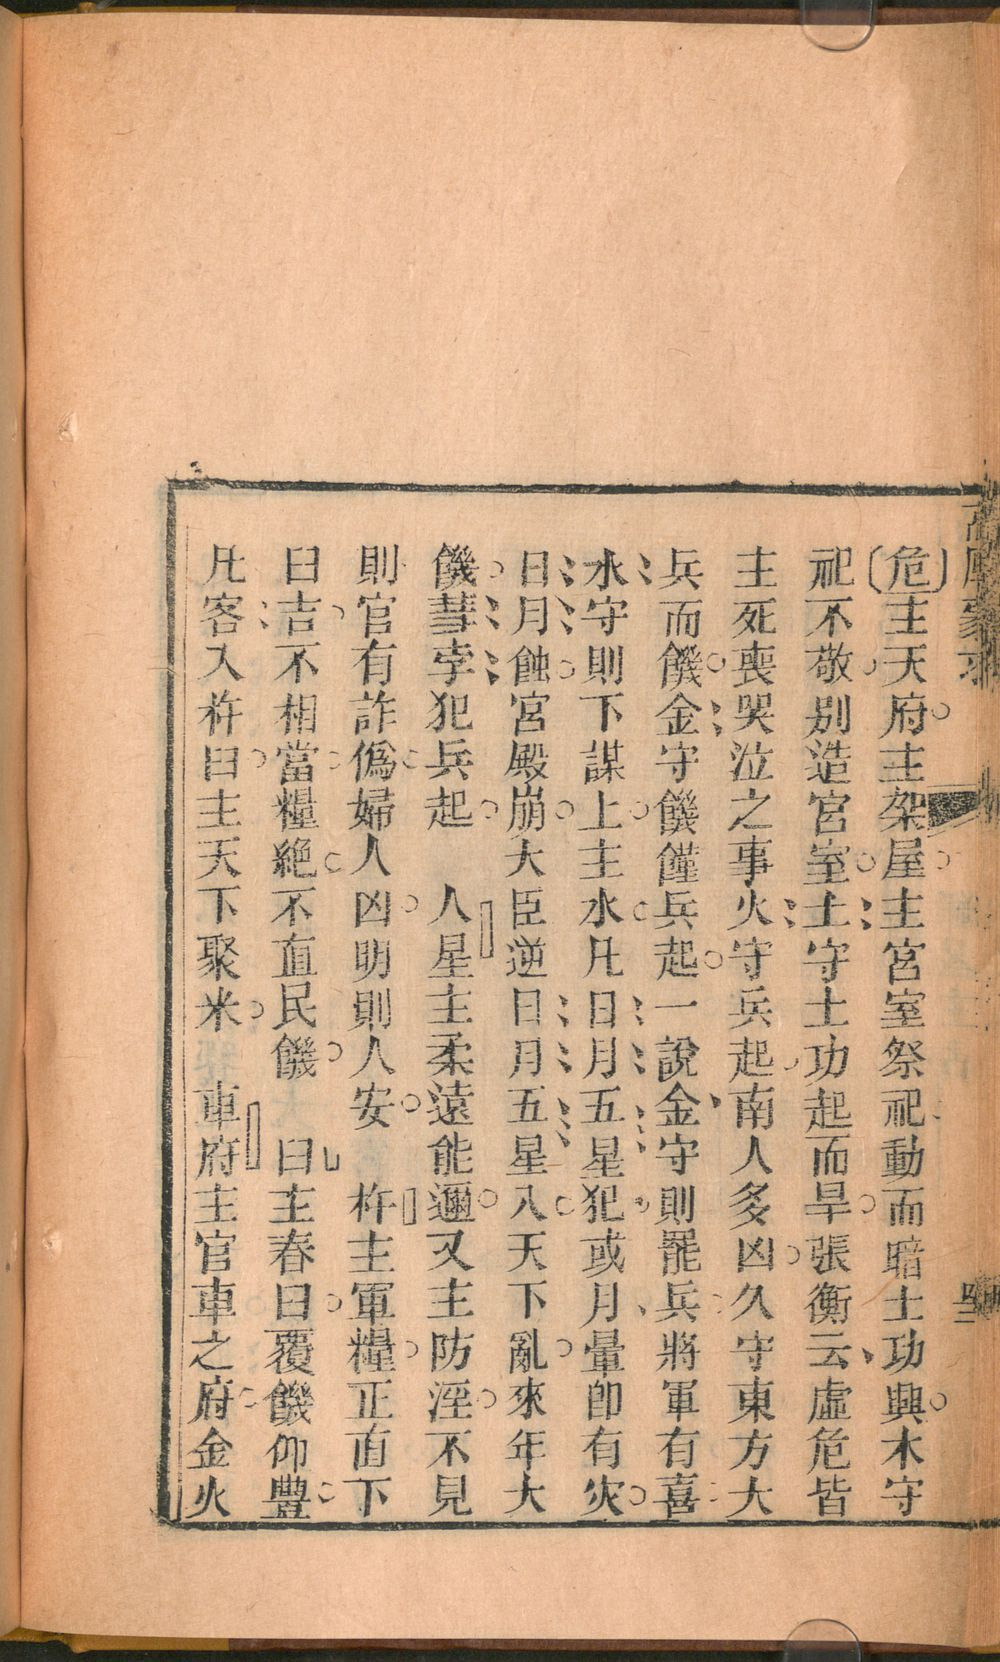 危主天府主架屋主宮室祭祀動而暗土功興木守
祀不敬別造宮室土守土功起而旱張衡云虛危皆
主死喪哭泣之事火守兵起南人多凶久守東方大
兵而饑金守饑饉兵起一說金守則罷兵將軍有喜
水守則下謀上主水凡日月五星犯或月暈卽有災
日月蝕宮殿崩大臣逆日月五星入天下亂來年大
饑彗孛犯兵起　人星主柔遠能邇又主防淫不見
則官有詐僞婦人凶明則人安　杵主軍糧正直下
臼吉不相當糧絶不直民饑　臼主春臼覆饑仰豐
凡客入杵臼主天下聚米　車府主官車之府金火